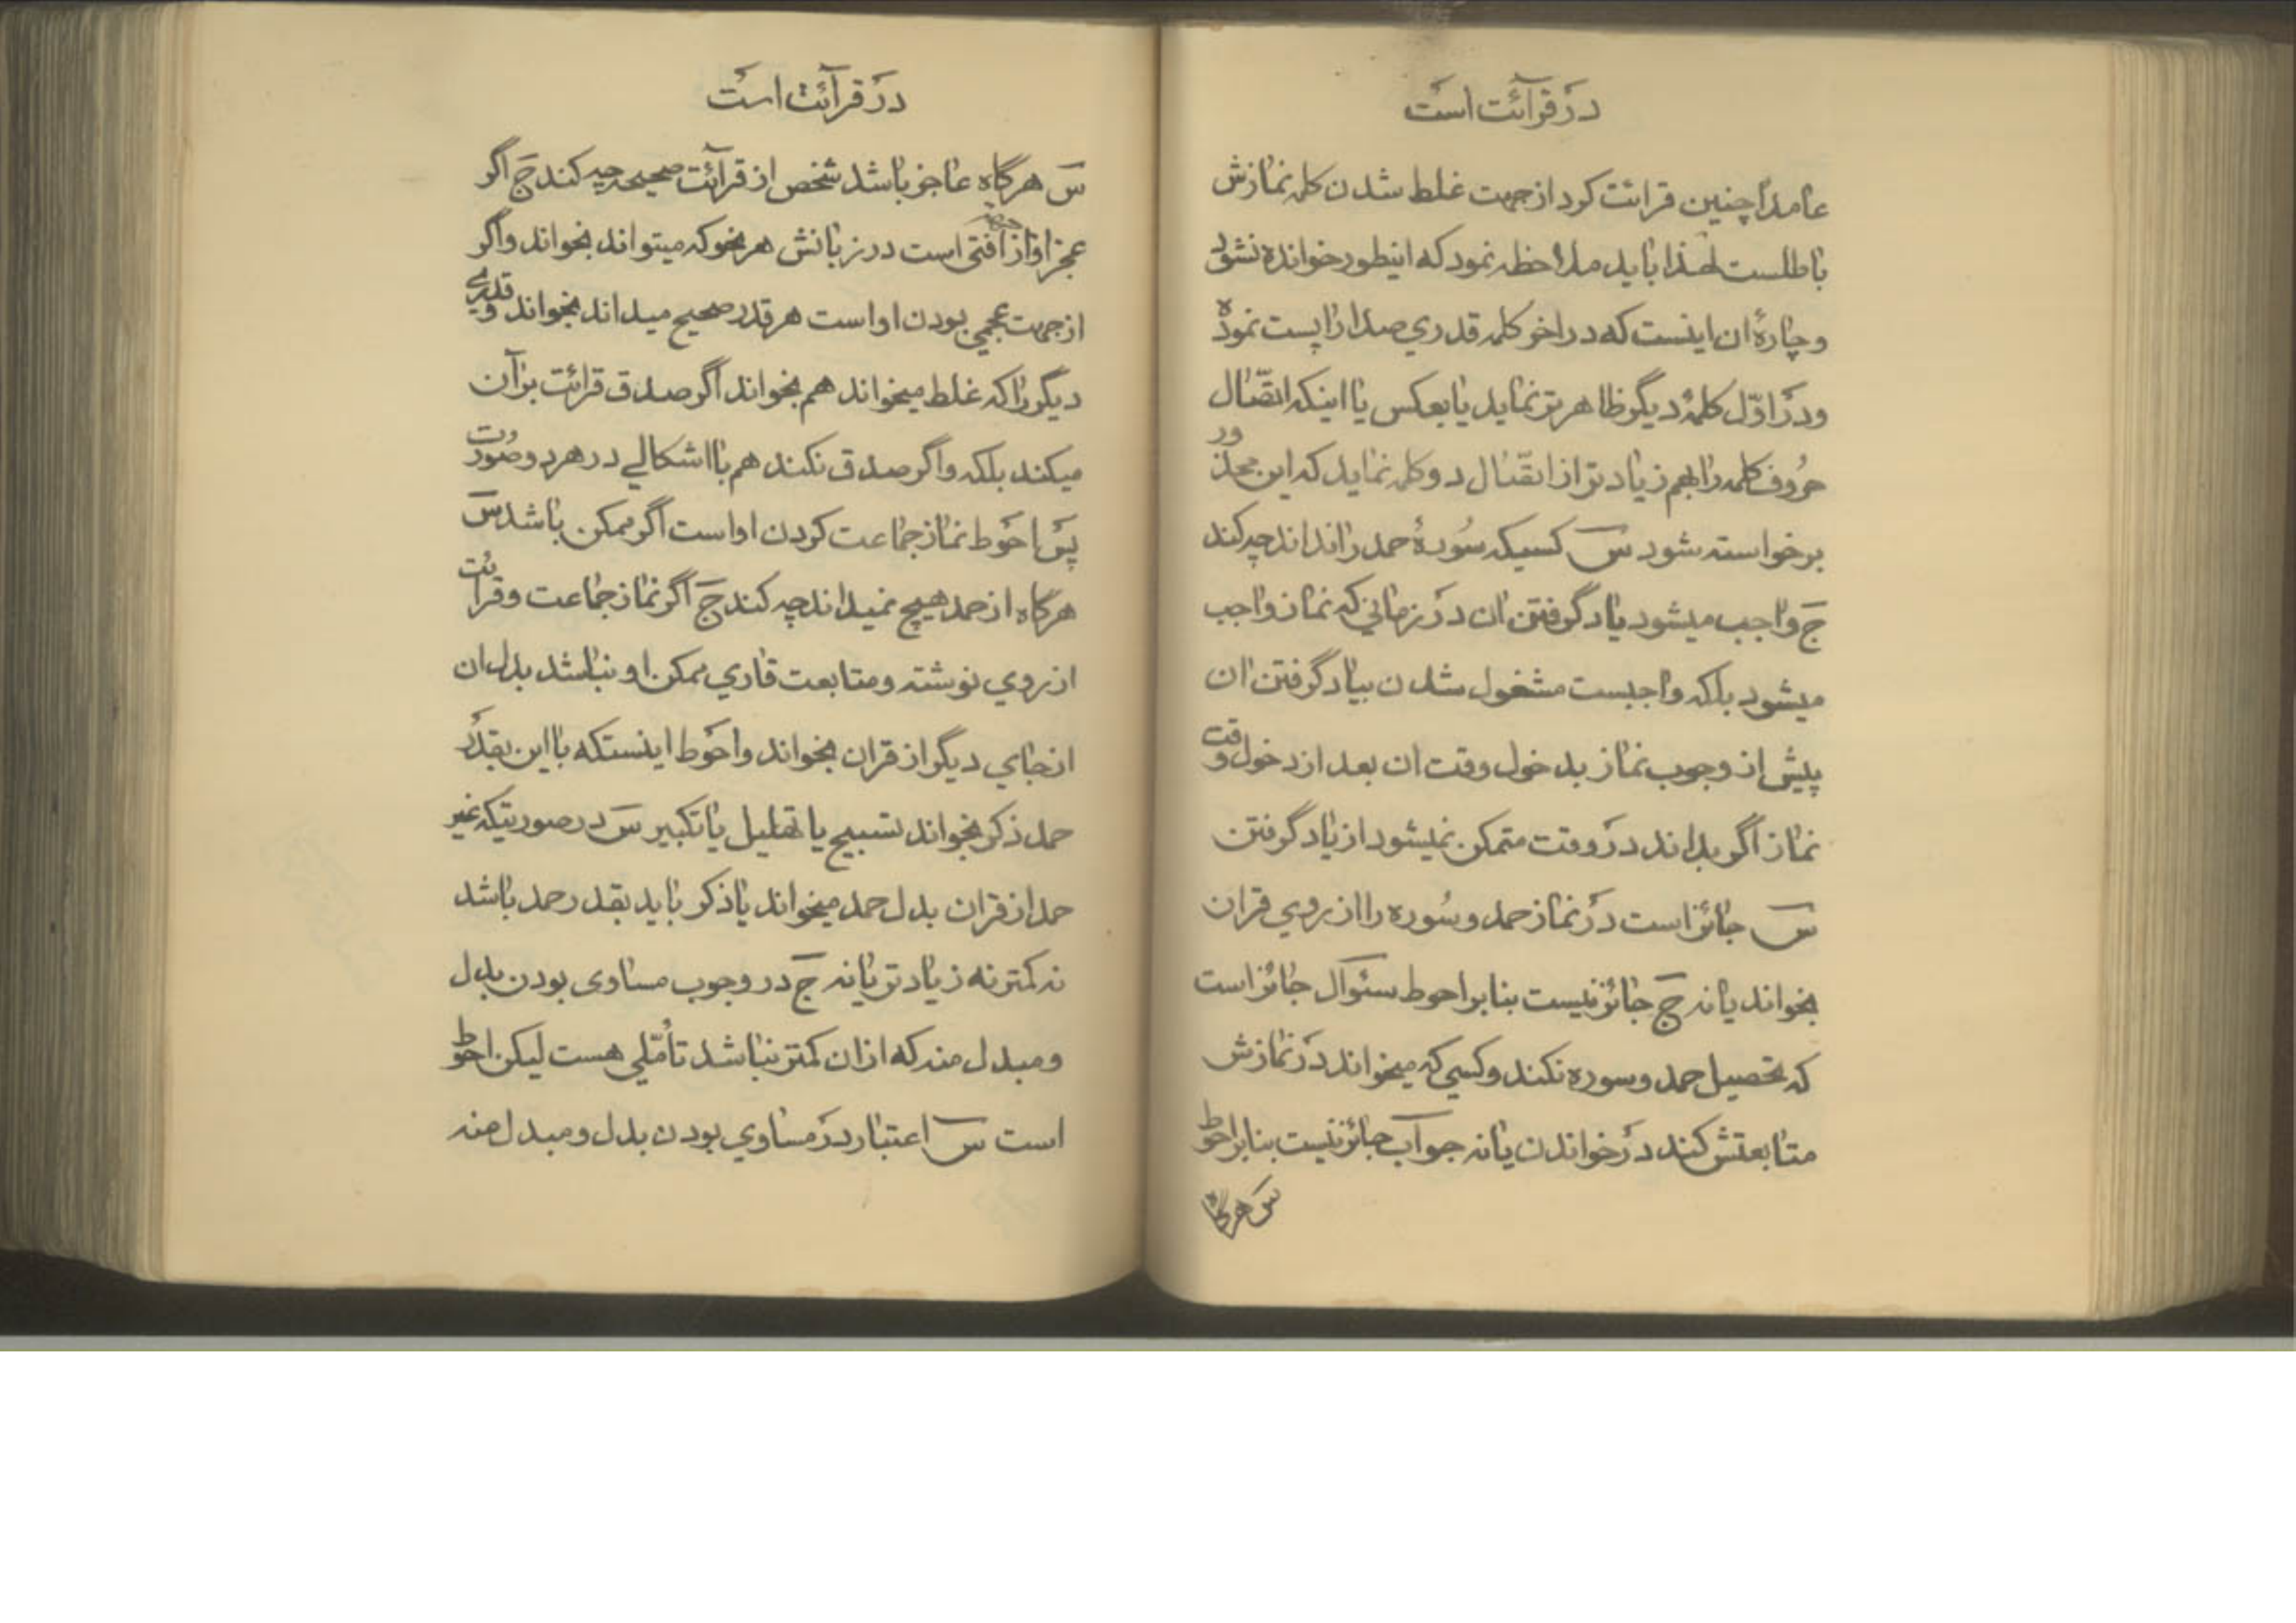 در قرآئت است
عامداً چنین قرائت کرد از جهت غلط شدن کلمه نمازش
باطلست لهذا باید ملاحظه نمود که اینطور خوانده نشود
و چارهٔ ان اینست که در اخر کلمه قدري صدا را پست نموده
و در اوّل کلمهٔ دیگر ظاهر تر نماید یا بعکس یا اینکه اتّصال
حروف کلمه را بهم زیاد تر از اتّصال دو کلمه نماید که این محذور
برخواسته شود س کسیکه سُورهٔ حمد را نداند چه کند
ج واجب میشود یاد گرفتن ان در زماني که نماز واجب
میشود بلکه واجبست مشغول شدن بیاد گرفتن ان
پیش از وجوب نماز بدخول وقت ان بعد از دخول وقت
نماز اگر بداند در وقت متمکن نمیشود از یاد گرفتن
س جائز است در نماز حمد و سُوره را از روي قران
بخواند یا نه ج جائز نیست بنابر احوط سئوآل جائز است
که تحصیل حمد و سوره نکند و کسي که میخواند در نمازش
متابعتش کند در خواندن یا نه جوآب جائز نیست بنابر احوط
س هرگاه
در قرآئت است
س هرگاه عاجز باشد شخص از قرآئت صحیحه چه کند ج اگر
عجز او از جهة افتی است در زبانش هر نحو که میتواند بخواند و اگر
از جهت عجمي بودن او است هر قدر صحیح میداند بخواند و قدري
دیگر را که غلط میخواند هم بخواند اگر صدق قرائت بر آن
میکند بلکه و اگر صدق نکند هم با اشکالي در هر دو صورت
پس احوَط نماز جماعت کردن او است اگر ممکن باشد س
هرگاه از حمد هیچ نمیداند چه کند ج اگر نماز جماعت و قرائت
از روي نوشته و متابعت قاري ممکن او نباشد بدل ان
از جاي دیگر از قران بخواند و احوَط اینستکه با این بقدر
حمد ذکر بخواند تسبیح یا تهلیل یا تکبیر س در صورتیکه غیر
حمد از قران بدل حمد میخواند یا ذکر باید بقدر حمد باشد
نه کمتر نه زیاد تر یا نه ج در وجوب مساوی بودن بدل
و مبدل منه که از ان کمتر نباشد تأمّلي هست لیکن احوط
است س اعتبار در مساوي بودن بدل و مبدل منه